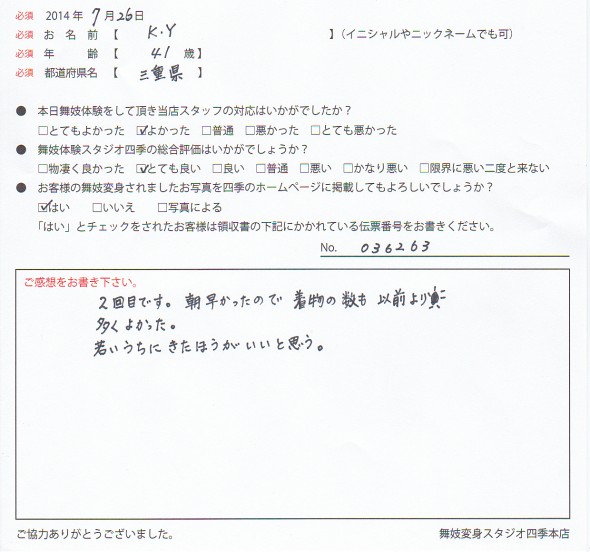 必須 2014年 7月26日
必須 お名前【 K.Y 】(イニシャルやニックネームでも可)
必須 年齢【 41 歳】
必須 都道府県名【 三重県 】
● 本日舞妓体験をして頂き当店スタッフの対応はいかがでしたか?
□とてもよかった ☑よかった □普通 □悪かった □とても悪かった
● 舞妓体験スタジオ四季の総合評価はいかがでしょうか?
□物凄く良かった ☑とても良い □良い □普通 □悪い □かなり悪い □限界に悪い二度と来ない
● お客様の舞妓変身されましたお写真を四季のホームページに掲載してもよろしいでしょうか?
☑はい □いいえ □写真による
「はい」とチェックをされたお客様は領収書の下記にかかれている伝票番号をお書きください。
No. 036263
ご感想をお書き下さい。
2回目です。朝早かったので 着物の数も 以前より
多くよかった。
若いうちに きたほうがいいと思う。
ご協力ありがとうございました。 舞妓変身スタジオ四季本店